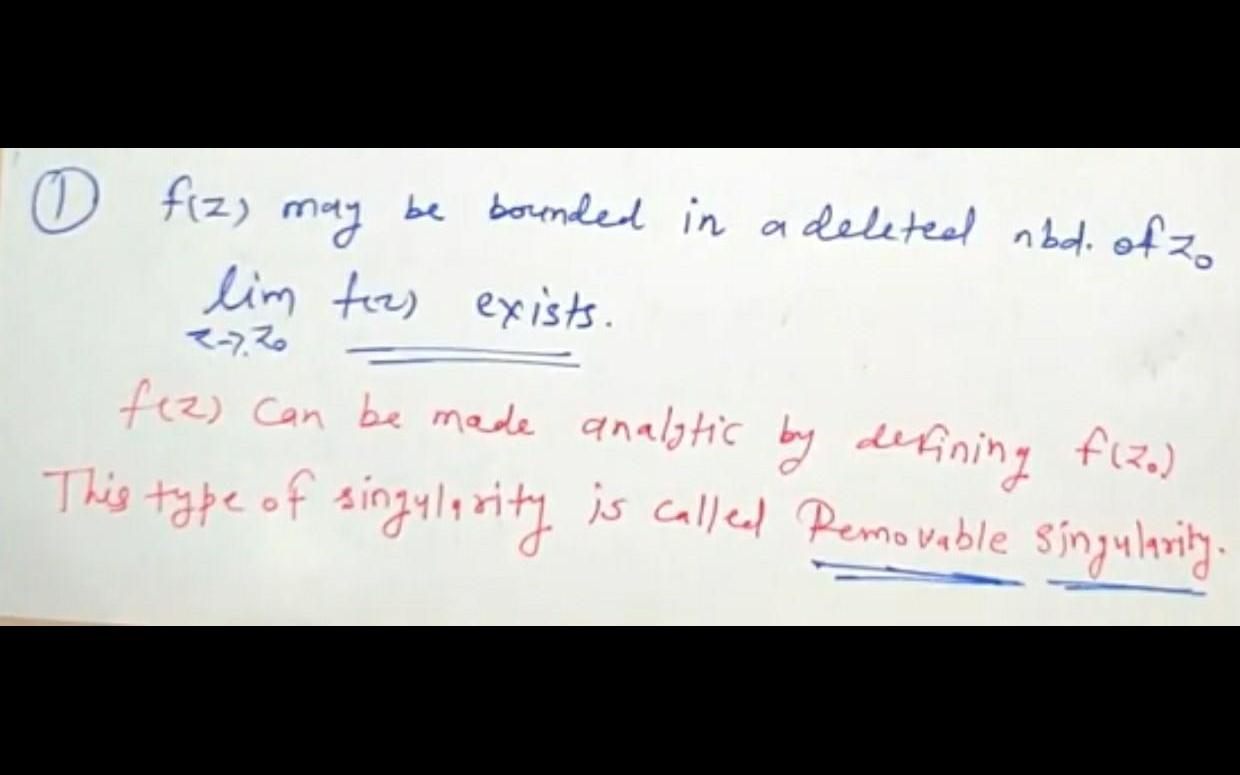 ① f(z) may be bounded in a deleted nbd. of z₀
lim f(z) exists.
z→z₀
f(z) can be made analytic by defining f(z₀)
This type of singularity is called Removable singularity.